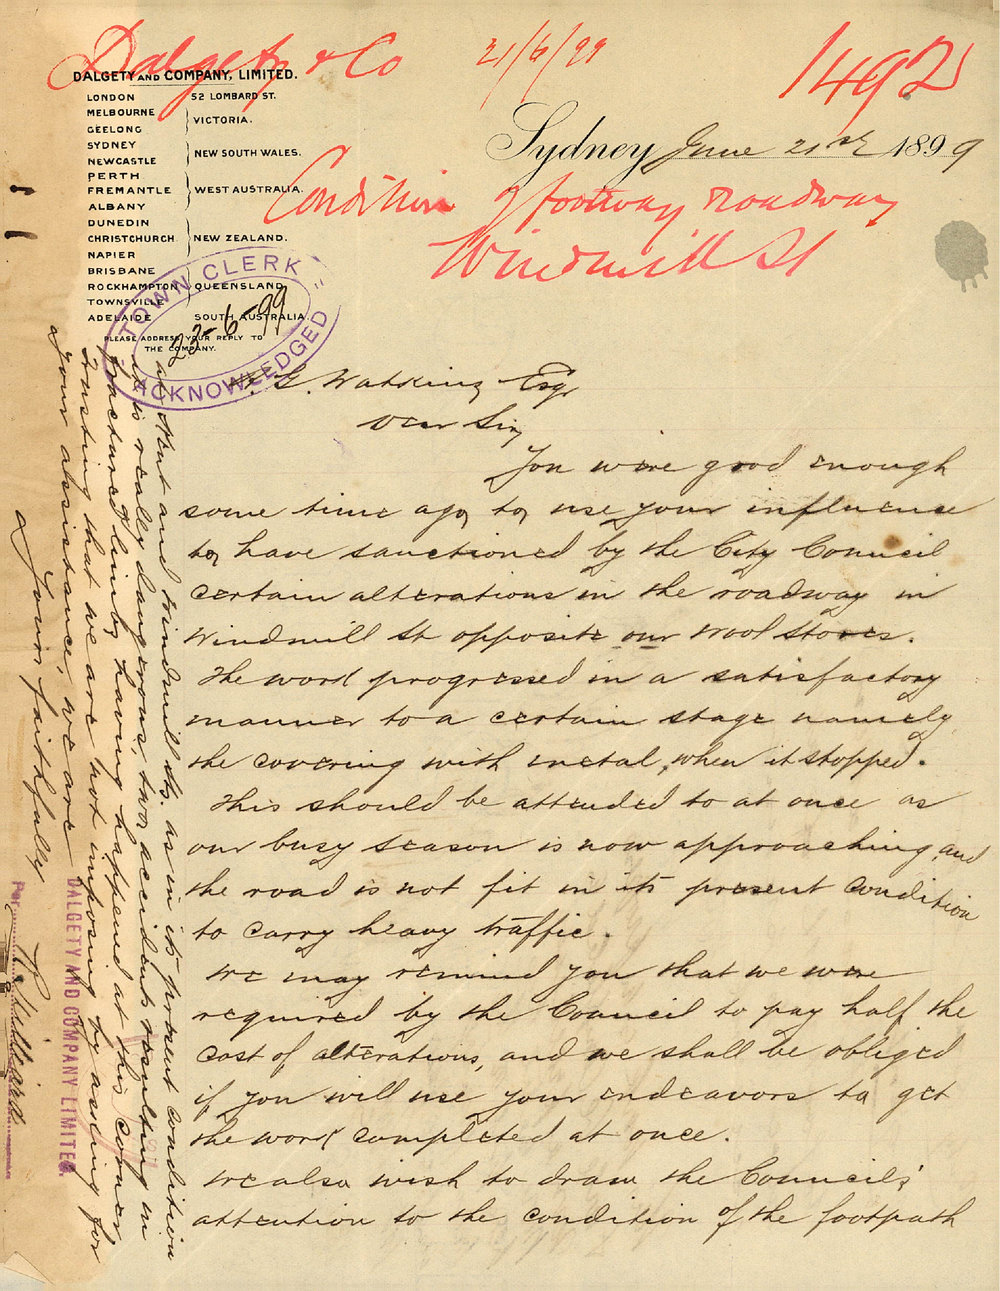 Dalgety & Co
21/6/99
1492
DALGETY AND COMPANY, LIMITED.
LONDON 52 LOMBARD ST.
MELBOURNE
GEELONG
VICTORIA.
SYDNEY
NEWCASTLE
NEW SOUTH WALES.
PERTH
FREMANTLE
ALBANY
WEST AUSTRALIA.
DUNEDIN
CHRISTCHURCH
NAPIER
NEW ZEALAND.
BRISBANE
ROCKHAMPTON
TOWNSVILLE
QUEENSLAND
ADELAIDE SOUTH AUSTRALIA
PLEASE ADDRESS YOUR REPLY TO
THE COMPANY.
Sydney June 21st 1899
Condition of footway roadway
Windmill St
TOWN CLERK
23-6-99
ACKNOWLEDGED
G. Watkins Esq
Dear Sir,
You were good enough
some time ago, to, use your influence
to, have sanctioned by the City Council
certain alterations in the roadway in
Windmill St opposite our Wool Stores.
The work progressed in a satisfactory
manner to a certain stage namely
the covering with metal, when it stopped.
This should be attended to at once as
our busy season is now approaching, and
the road is not fit in its present condition
to carry heavy traffic.
We may remind you that we were
required by the Council to pay half the
cost of alterations, and we shall be obliged
if you will use your endeavors to get
the work completed at once.
We also wish to draw the Councils'
attention to the condition of the footpath
at Kent and Windmill Sts. as in its present condition
it is really dangerous, two accidents resulting in
fractured limbs having happened at this corner
Trusting that we are not imposing by asking for
your assistance, we are
Yours faithfully
DALGETY AND COMPANY LIMITED.
Per